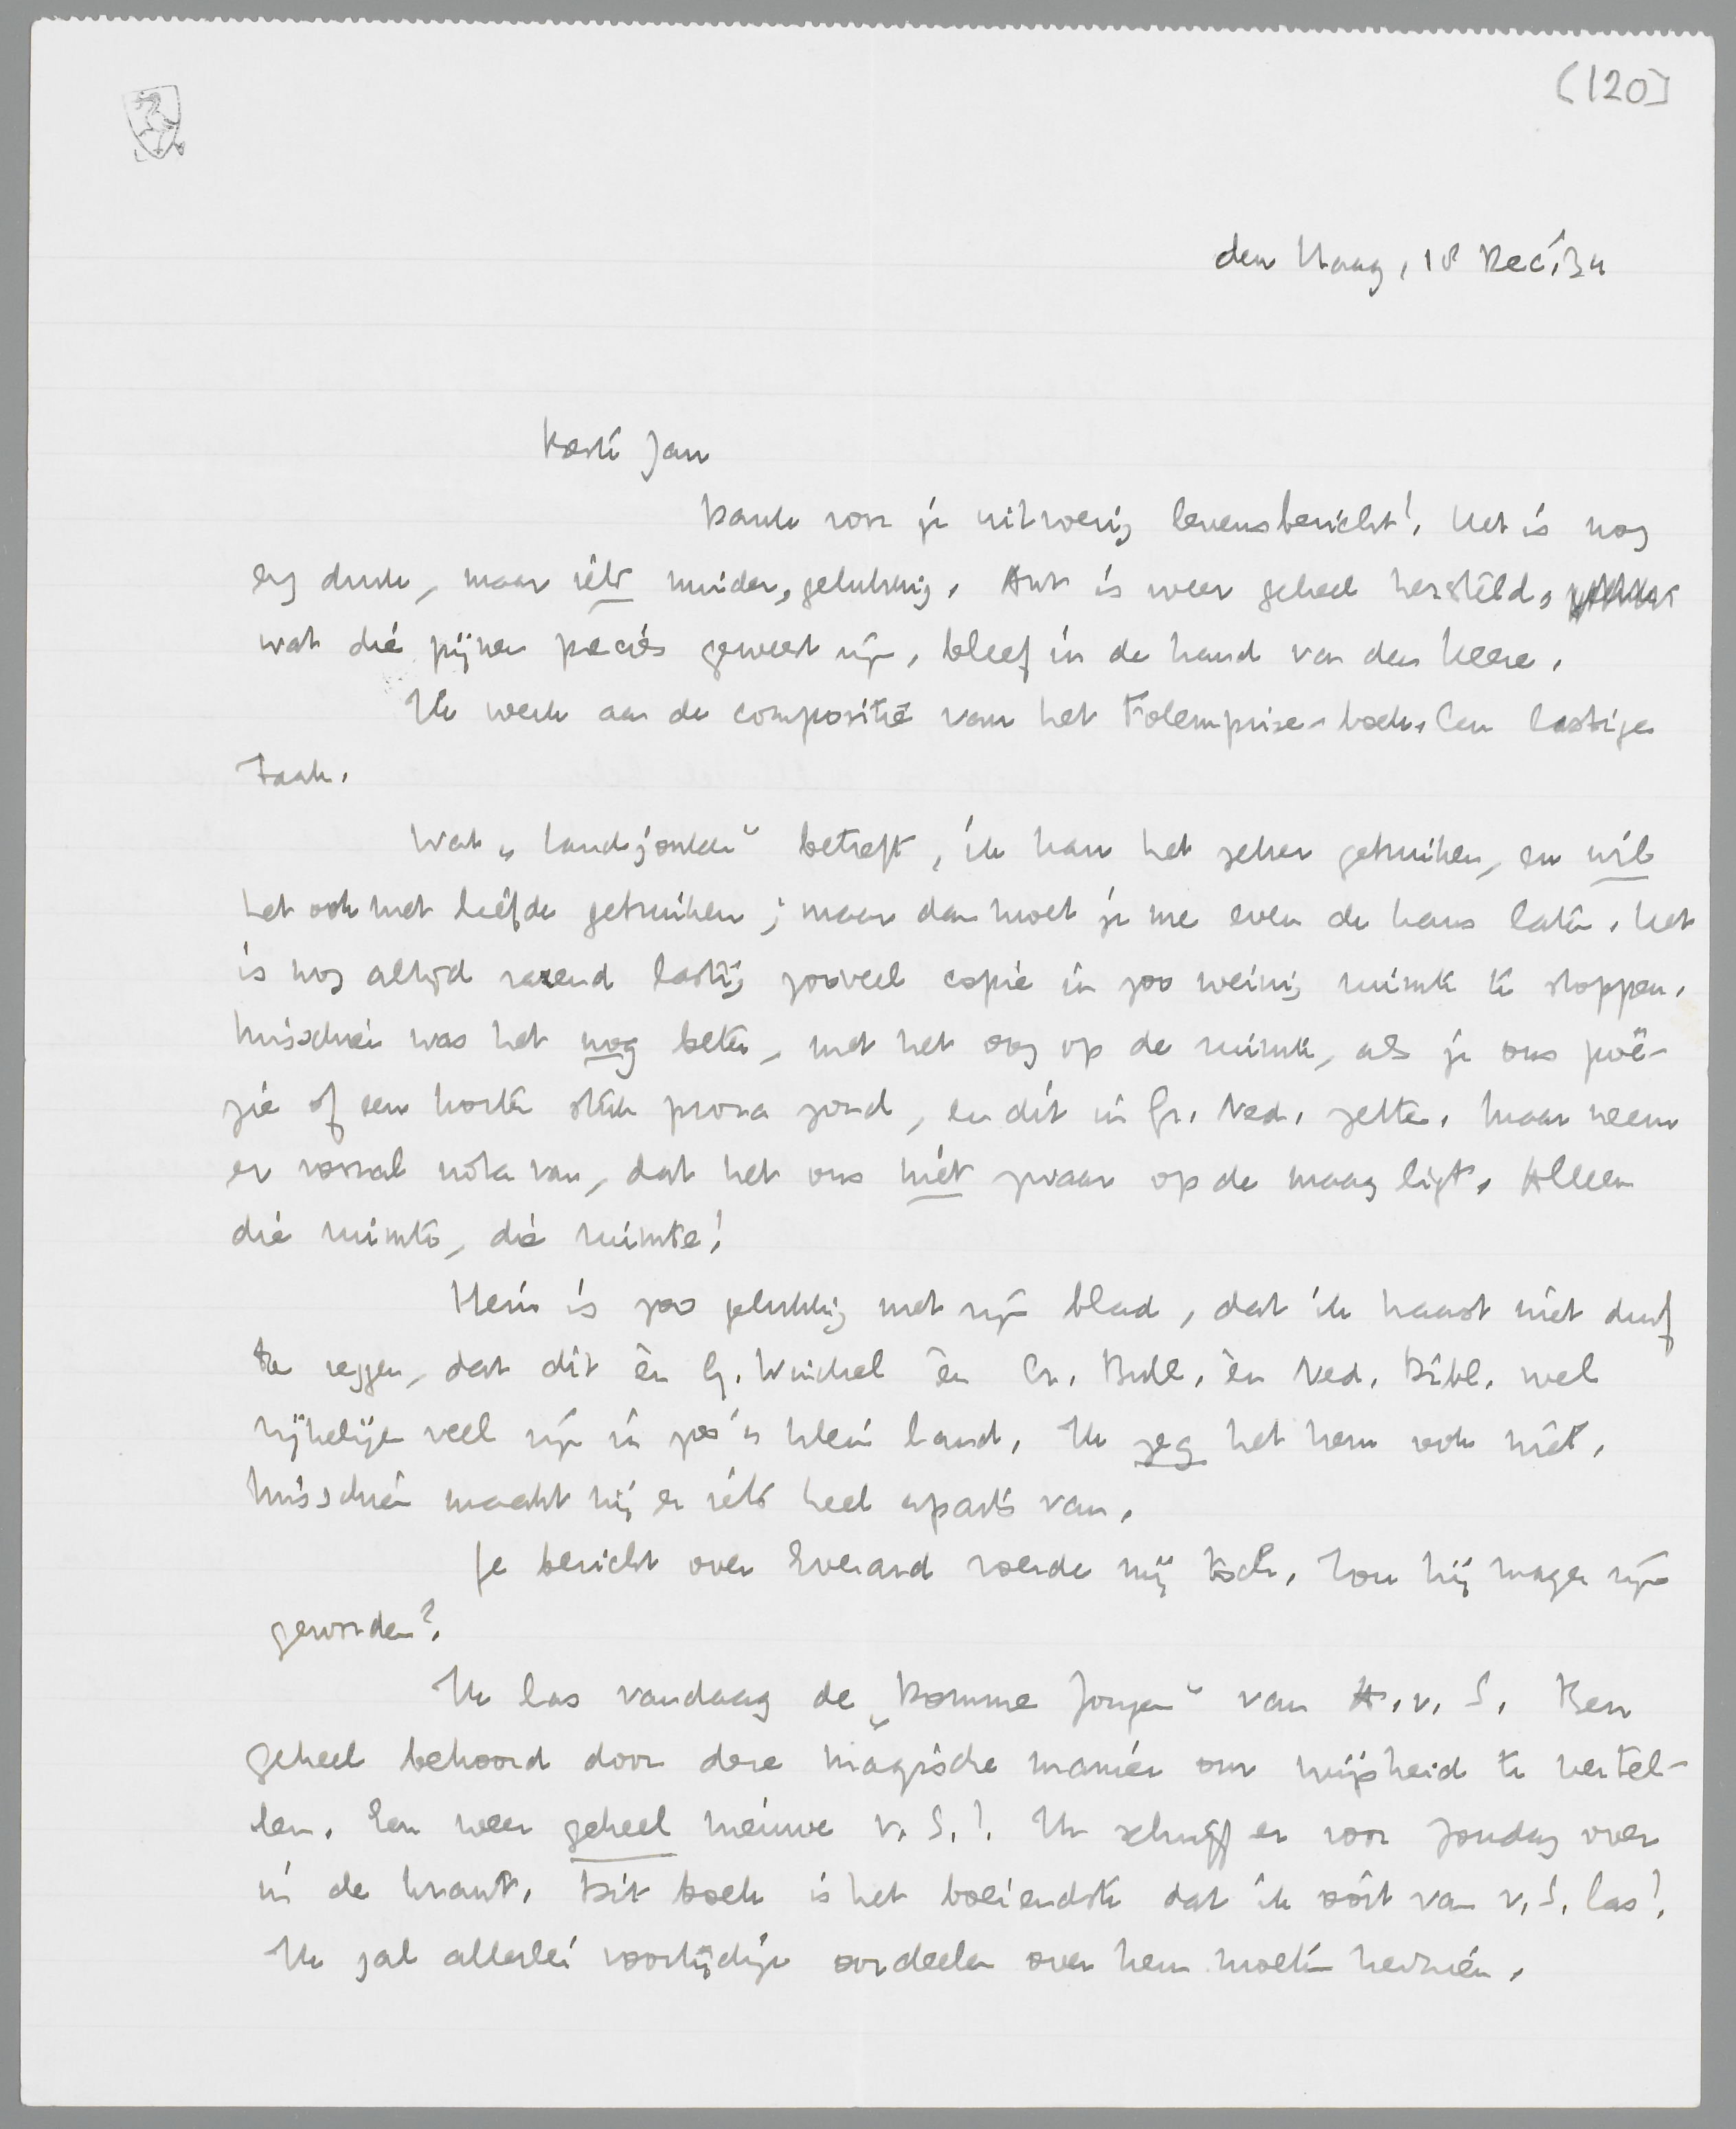 [120]
den Haag, 18 Dec. '34
Beste Jan
Dank voor je uitvoerig levensbericht! Het is nog
erg druk, maar iets minder, gelukkig. Ant is weer geheel hersteld,
wat die pijnen precies geweest zijn, bleef in de hand van den Heere.
Ik werk aan de compositie van het Tolemprise-boek. Een lastige
taak.
Wat „Landsjonker" betreft, ik kan het zeker gebruiken, en wil
het ook met liefde gebruiken; maar dan moet je me even de kans laten. Het
is nog altijd razend lastig zooveel copie in zoo weinig ruimte te stoppen.
Misschien was het nog beter, met het oog op de ruimte, als je ons poë-
zie of een korter stuk proza zond, en dit in Gr. Ned. zette. Maar neem
er vooral nota van, dat het ons niet zwaar op de maag ligt. Alleen
die ruimte, die ruimte!
Hein is zoo gelukkig met zijn blad, dat ik haast niet durf
te zeggen, dat dit èn G. Winckel èn Cr. Bull. èn Ned. Bibl. wel
rijkelijk veel zijn in zoo'n klein land. Ik zeg het hem ook niet.
Misschien maakt hij er iets heel aparts van.
Je bericht over Everard roerde mij toch. Zou hij mager zijn
geworden?
Ik las vandaag de „Domme Jongen" van A. v. S. Ben
geheel bekoord door deze magische manier om wijsheid te vertel-
len. Een weer geheel nieuwe v. S.! Ik schrijf er voor Zondag over
in de krant. Dit boek is het boeiendste dat ik ooit van v. S. las!
Ik zal allerlei voortijdige oordeelen over hem moeten herzien.